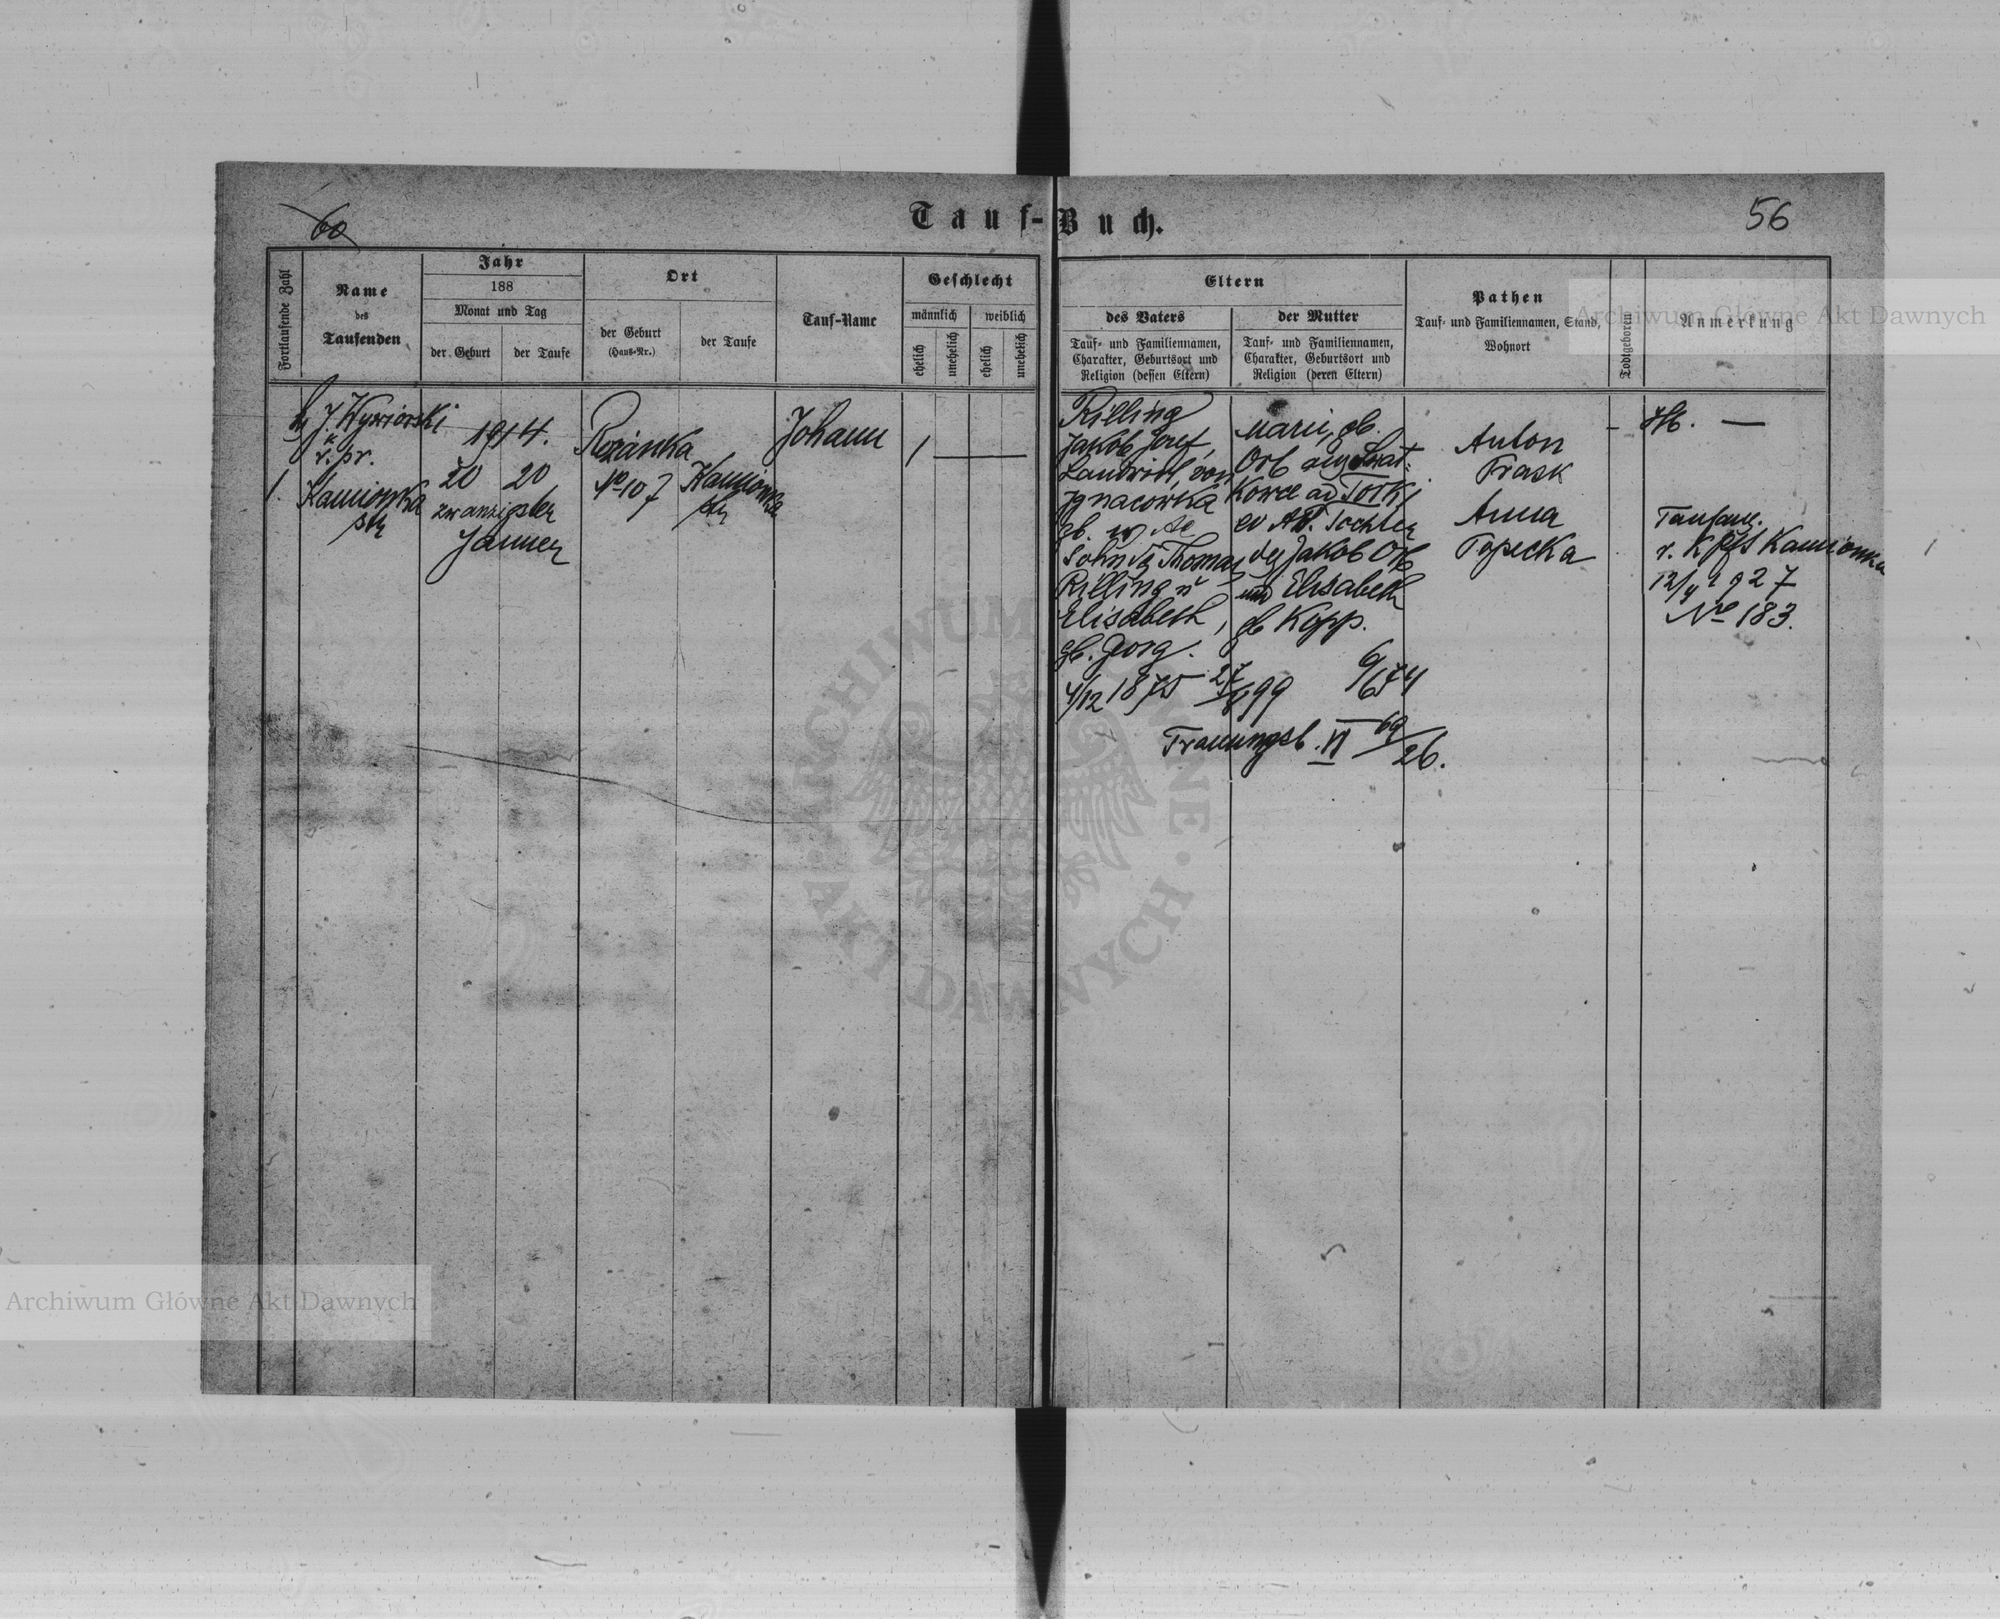 60
Tauf-Buch.
56
Fortlaufende Zahl
Name
des
Taufenden
Jahr
188
Monat und Tag
der Geburt
der Taufe
Ort
der Geburt
(Haus-Nr.)
der Taufe
Tauf-Name
Geschlecht
männlich
weiblich
ehelich
unehelich
ehelich
unehelich
Eltern
des Vaters
Tauf- und Familiennamen,
Charakter, Geburtsort und
Religion (dessen Eltern)
der Mutter
Tauf- und Familiennamen,
Charakter, Geburtsort und
Religion (deren Eltern)
Pathen
Tauf- und Familiennamen, Stand,
Wohnort
Todtgeboren
Anmerkung
1.
J. Wywiórski
r. pr.
Kamionka
str
1914.
20 20
zwanzigster
Jänner
Rozanka
No 107
Kamionka
str
Johann
1
Rilling
Jakob Josef,
Landwirt, von
Ignacowka
Sohn des Thomas
Rilling u
Elisabeth,
gb. Georg.
4/12 1875
Marie, gb.
Orb aus
Kowce ad Torki
ev AB. Tochter
des Jakob Orb
und Elisabeth
gb Kopp.
27/ 899
6/6 74
Trauungsb. VI 69/26.
Anton
Trask
Anna
Topecka
Hb. —
v. Kamionka
12/4 1927
No 183.
Archiwum Główne Akt Dawnych
ARCHIWUM GŁÓWNE · AKT DAWNYCH ·
Archiwum Główne Akt Dawnych